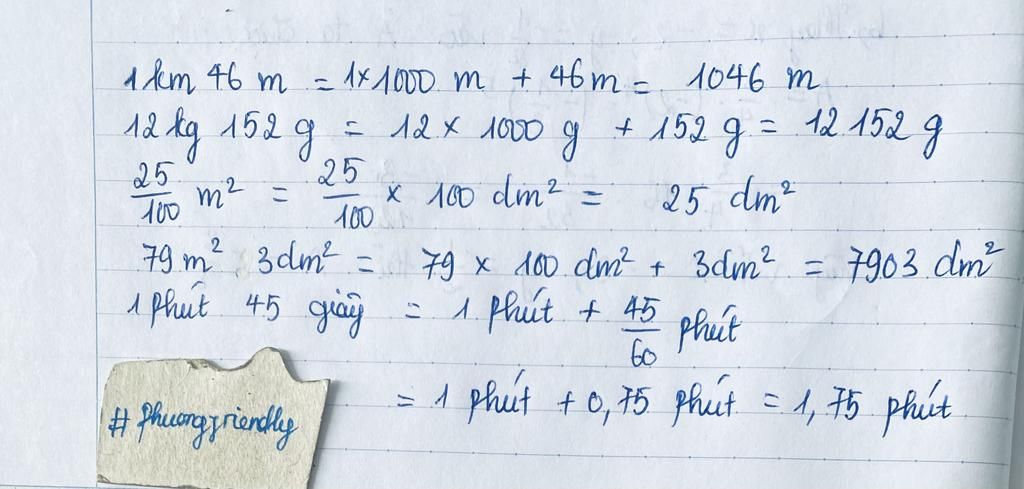 1 km 46 m = 1 × 1000 m + 46 m = 1046 m
12 kg 152 g = 12 × 1000 g + 152 g = 12 152 g
25/100 m² = 25/100 × 100 dm² = 25 dm²
79 m² 3 dm² = 79 × 100 dm² + 3 dm² = 7903 dm²
1 phút 45 giây = 1 phút + 45/60 phút
= 1 phút + 0,75 phút = 1,75 phút
#phuongfriendly